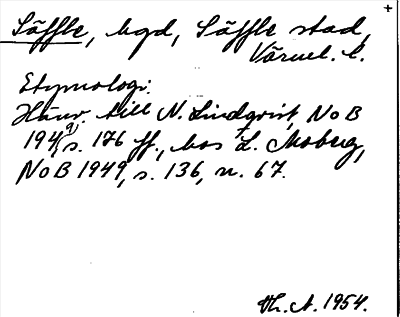 +
Säffle, bgd, Säffle stad,
Värml. l.
Etymologi:
Hänv. till N. Lindqvist, NoB
194, s. 176 ff., hos L. Moberg,
NoB 1949, s. 136, n. 67.
Th. A. 1954.